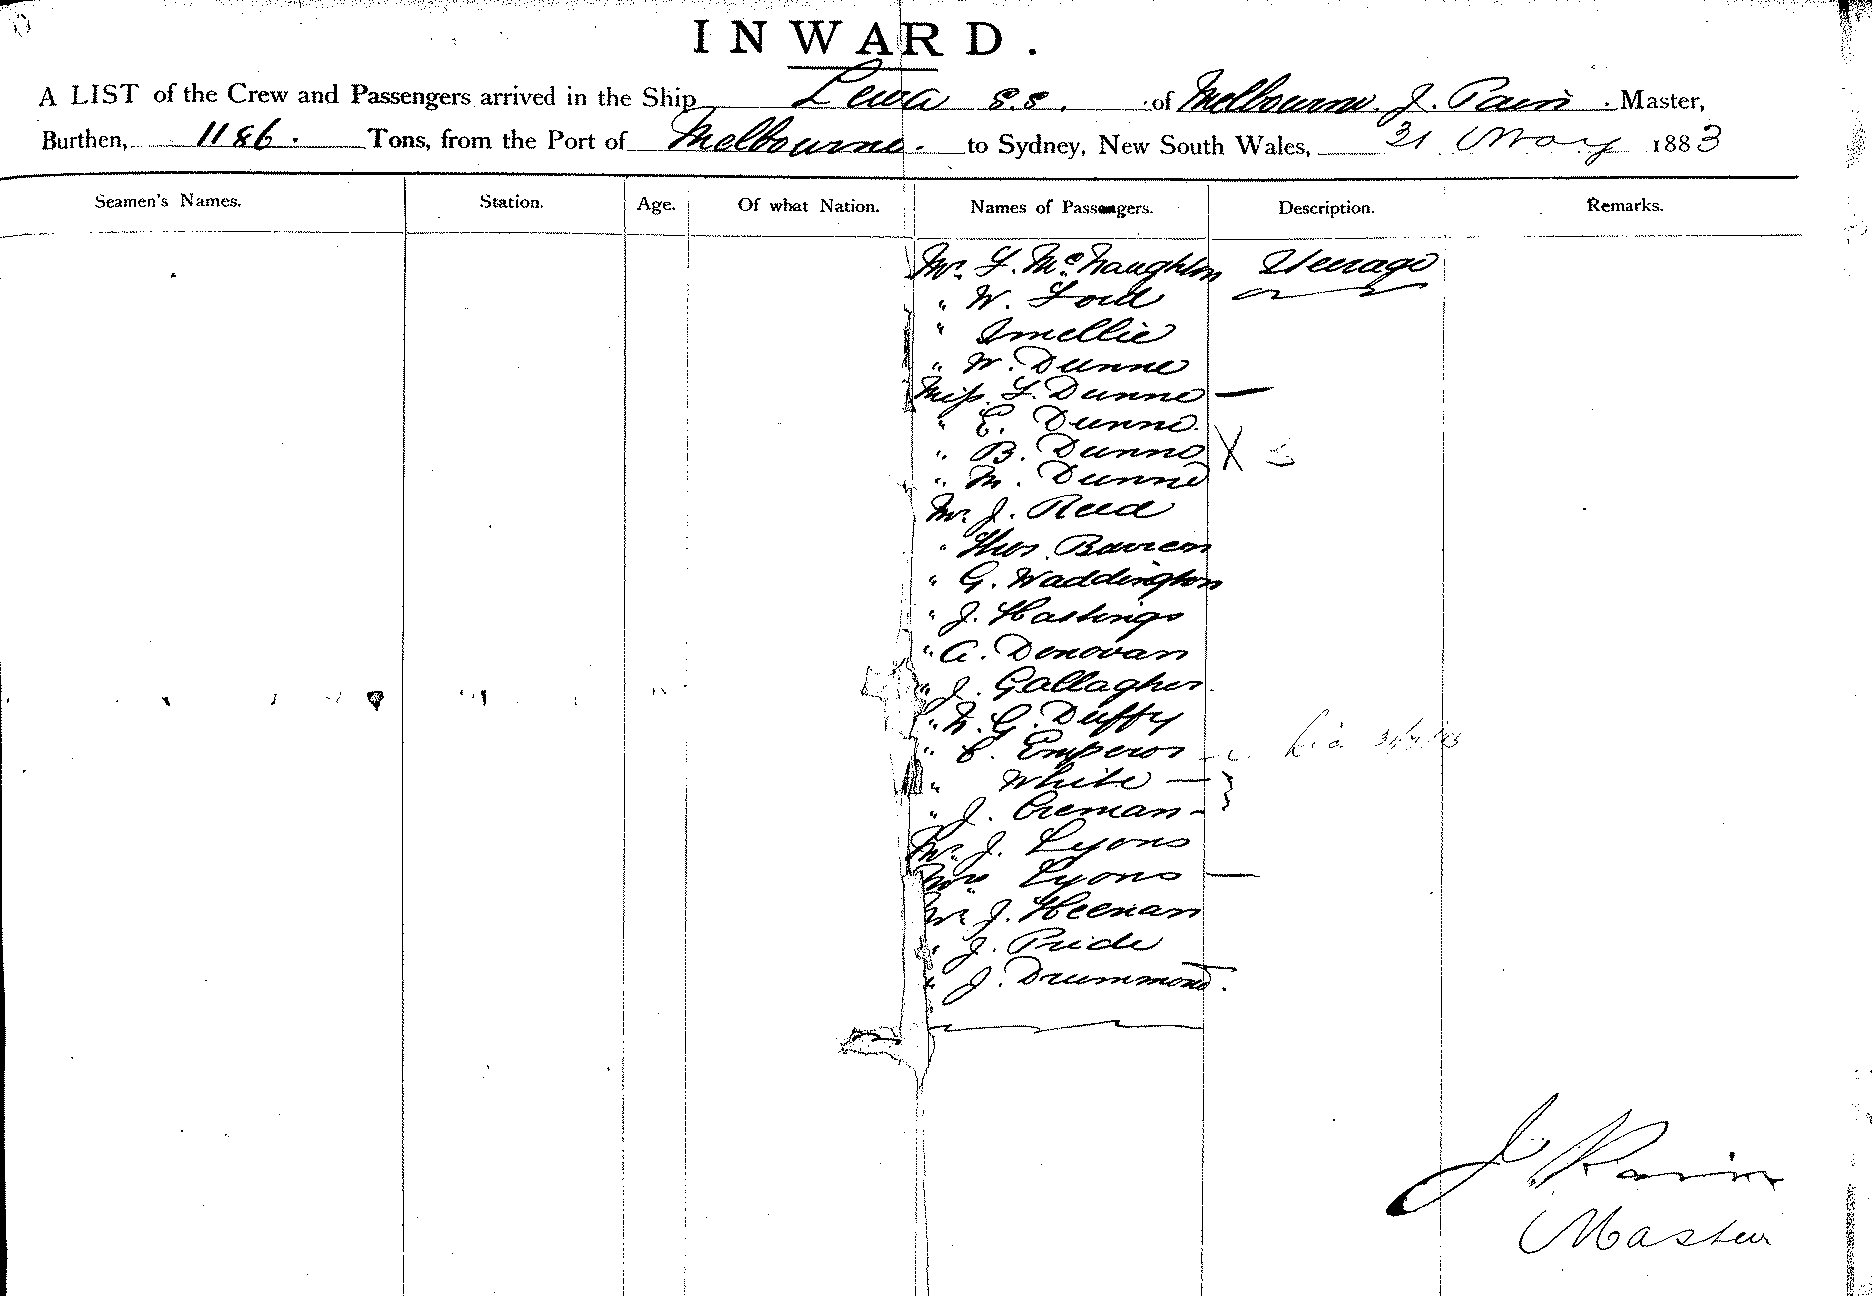 INWARD.
A LIST of the Crew and Passengers arrived in the Ship Leura s.s. of Melbourne. J. Pain. Master,
Burthen, 1186. Tons, from the Port of Melbourne. to Sydney, New South Wales, 31 May 1883
Seamen's Names. Station. Age. Of what Nation. Names of Passengers. Description. Remarks.
Mr. F. McNaughton Steerage
" W. Ford
" Smellie
" W. Dunne
Miss. F. Dunne —
" E. Dunne.
" B. Dunne X
" M. Dunne
Mr. J. Reed
" Thos.
" G. Waddington
" J. Hastings
" A. Donovan
" J. Gallagher.
" G. Duffy
" C. Emperor
" White — }
" J. Creman -
Mr. J. Lyons
Mrs Lyons —
Mr J. Heenan
" J. Pride
" J. Drummond.
J Pain
Master